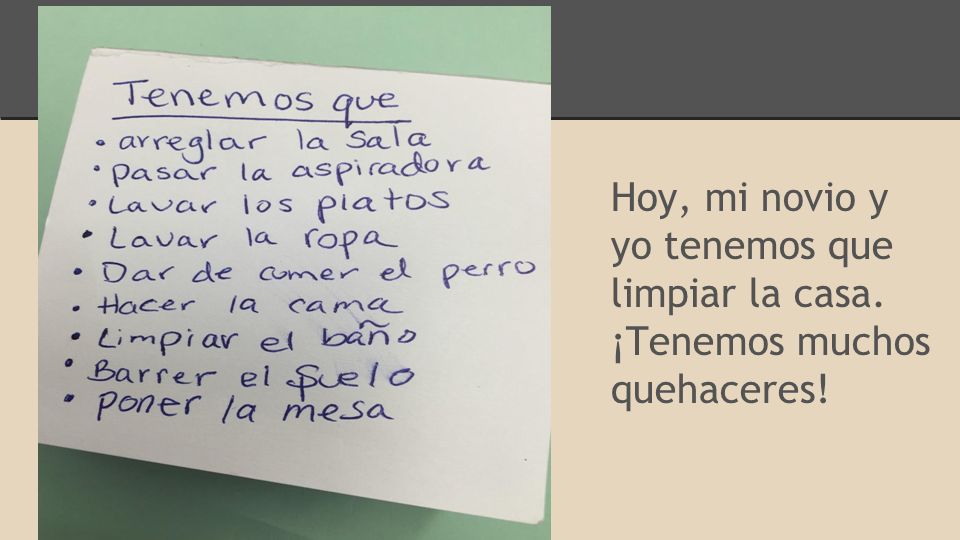 Tenemos que
• arreglar la sala
• pasar la aspiradora
• Lavar los platos
• Lavar la ropa
• Dar de comer el perro
• Hacer la cama
• Limpiar el baño
• Barrer el suelo
• poner la mesa
Hoy, mi novio y
yo tenemos que
limpiar la casa.
¡Tenemos muchos
quehaceres!